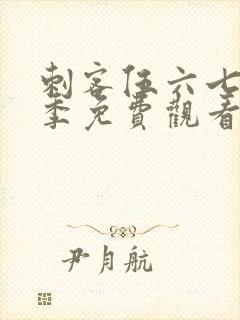 刺客伍六七
季免費觀看
尹月航